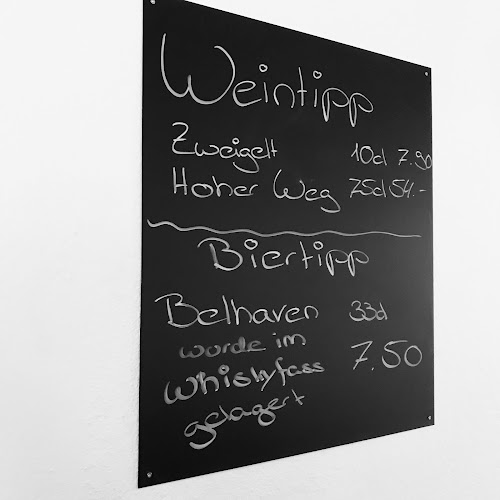 Weintipp
Zweigelt 10cl 7.90
Hoher Weg 75cl 54.-
Biertipp
Belhaven 33cl
wurde im 7.50
Whiskyfass
gelagert